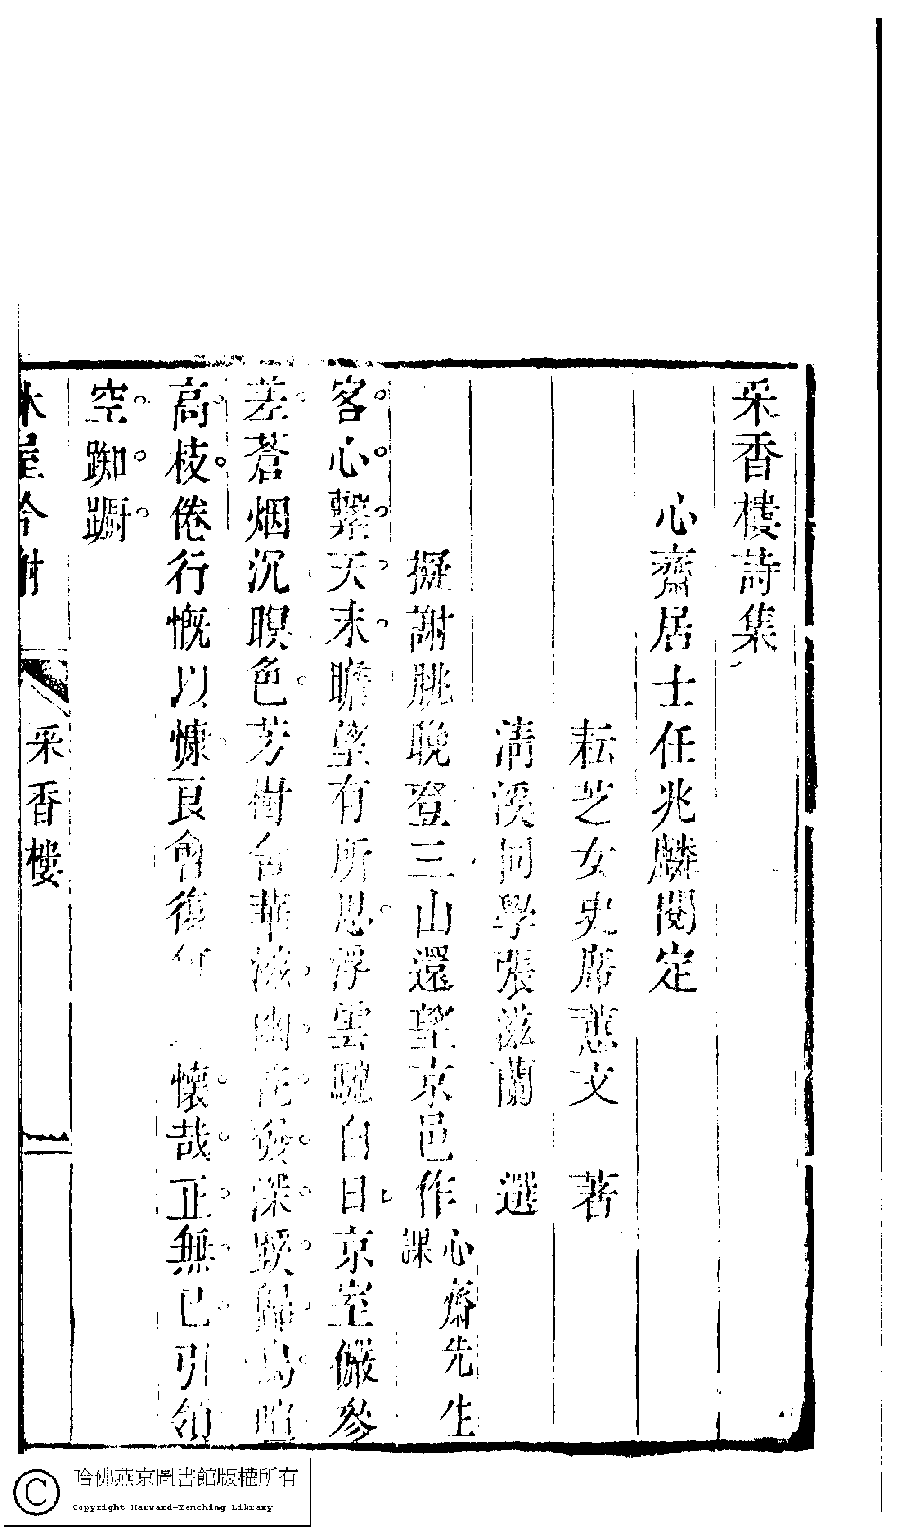 采香樓詩集
心齋居士任兆麟閱定
耘芝女史席蕙文 著
清溪同學張滋蘭 選
擬謝朓晚登三山還望京邑作心齋先生課
客心繫天末瞻望有所思浮雲晼白日京室儼參
差蒼烟沉暝色芳樹含華滋幽花發深蹊歸鳥喧
高枝倦行慨以慷良會復何 懷哉正無已引領
空踟躕
采香樓
哈佛燕京圖書館版權所有
Copyright Harvard-Yenching Library